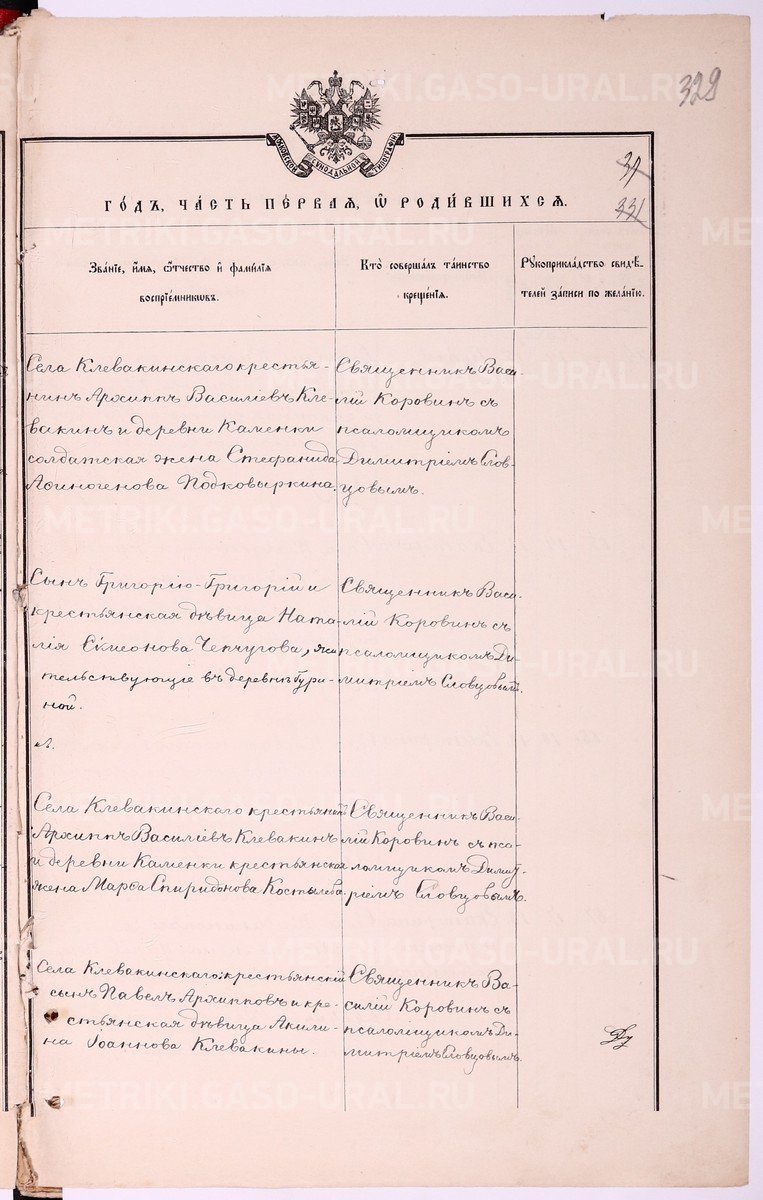 329
МОСКОВСКОЙ СѴНОДАЛЬНОЙ ТИПОГРАФІИ
31
331
ГОДЪ, ЧАСТЬ ПЕРВАЯ, Ѿ РОДИВШИХСЯ.
Званіе, имя, Ѿтчество и фамилія
воспріемниковъ.
Кто совершалъ таинство
крещенія.
Рукоприкладство свидѣ-
телей записи по желанію.
Села Клевакинскаго крестья-
нинъ Архиппъ Василіевъ Кле-
вакинъ и деревни Каменки
солдатская жена Стефанида
Аѳиногенова Подковыркина.
Священникъ Васи-
лій Коровинъ съ
псаломщикомъ
Димитріемъ Слов-
цовымъ.
Сынъ Григорію-Григорій и
крестьянская дѣвица Ната-
лія Симеонова Чепчугова, жи-
тельствующіе въ деревнѣ Гури-
ной.
Священникъ Васи-
лій Коровинъ съ
псаломщикомъ Ди-
митріемъ Словцовымъ.
Села Клевакинскаго крестьянинъ
Архиппъ Василіевъ Клевакинъ
и деревни Каменки крестьянская
жена Марѳа Спиридонова Костылева.
Священникъ Васи-
лій Коровинъ съ пса-
ломщикомъ Димит-
ріемъ Словцовымъ.
Села Клевакинскаго: крестьянскій
сынъ Павелъ Архипповъ и кре-
стьянская дѣвица Акили-
на Іоаннова Клевакины.
Священникъ Ва-
силій Коровинъ съ
псаломщикомъ Ди-
митріемъ Словцовымъ.
METRIKI.GASO-URAL.RU